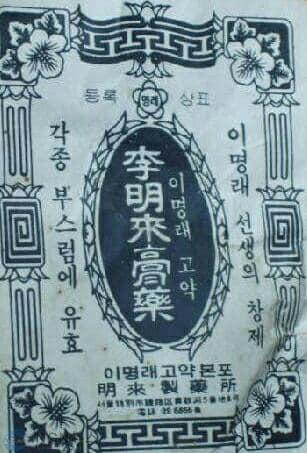 등록 명래 상표
이명래 선생의 창제
李明來膏藥
이명래 고약
각종 부스럼에 유효
이명래고약본포
明來製藥所